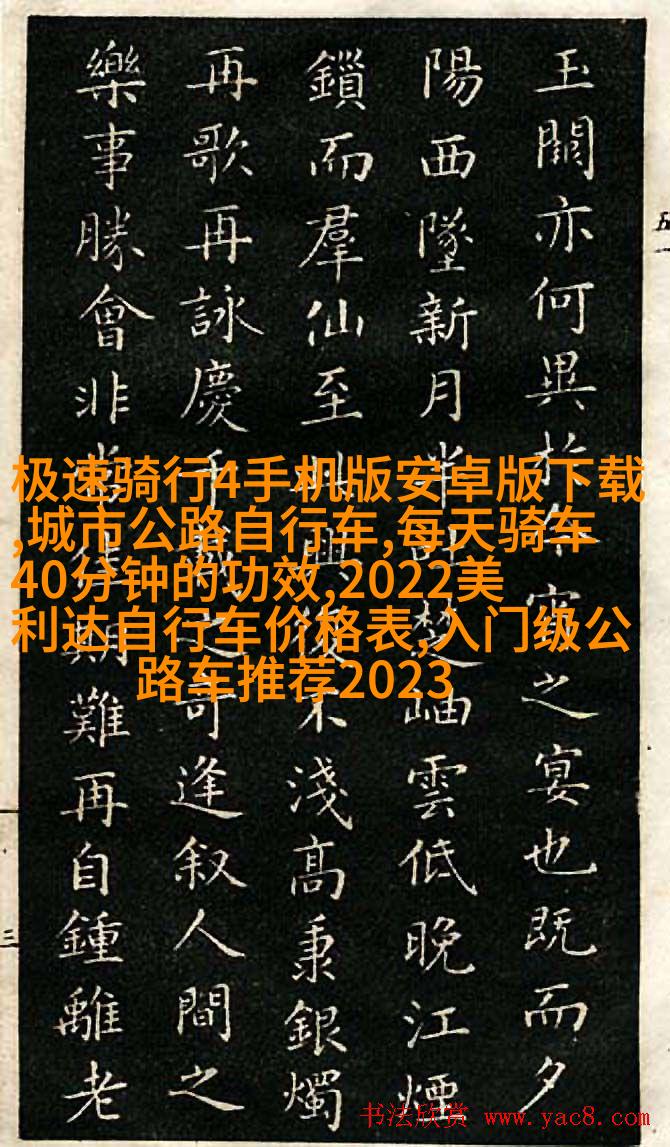 玉闕亦何異於之宴也既而夕
陽西墜新月半吐楚岫雲低晚江煙
鎖而羣仙至興不淺高秉銀燭
再歌再詠慶千之可逢叙人間之
樂事勝會非常佳期難再自鍾離老
五
三
极速骑行4手机版安卓版下载
,城市公路自行车,每天骑车
40分钟的功效,2022美
利达自行车价格表,入门级公
路车推荐2023
书法欣赏 www.yac8.com